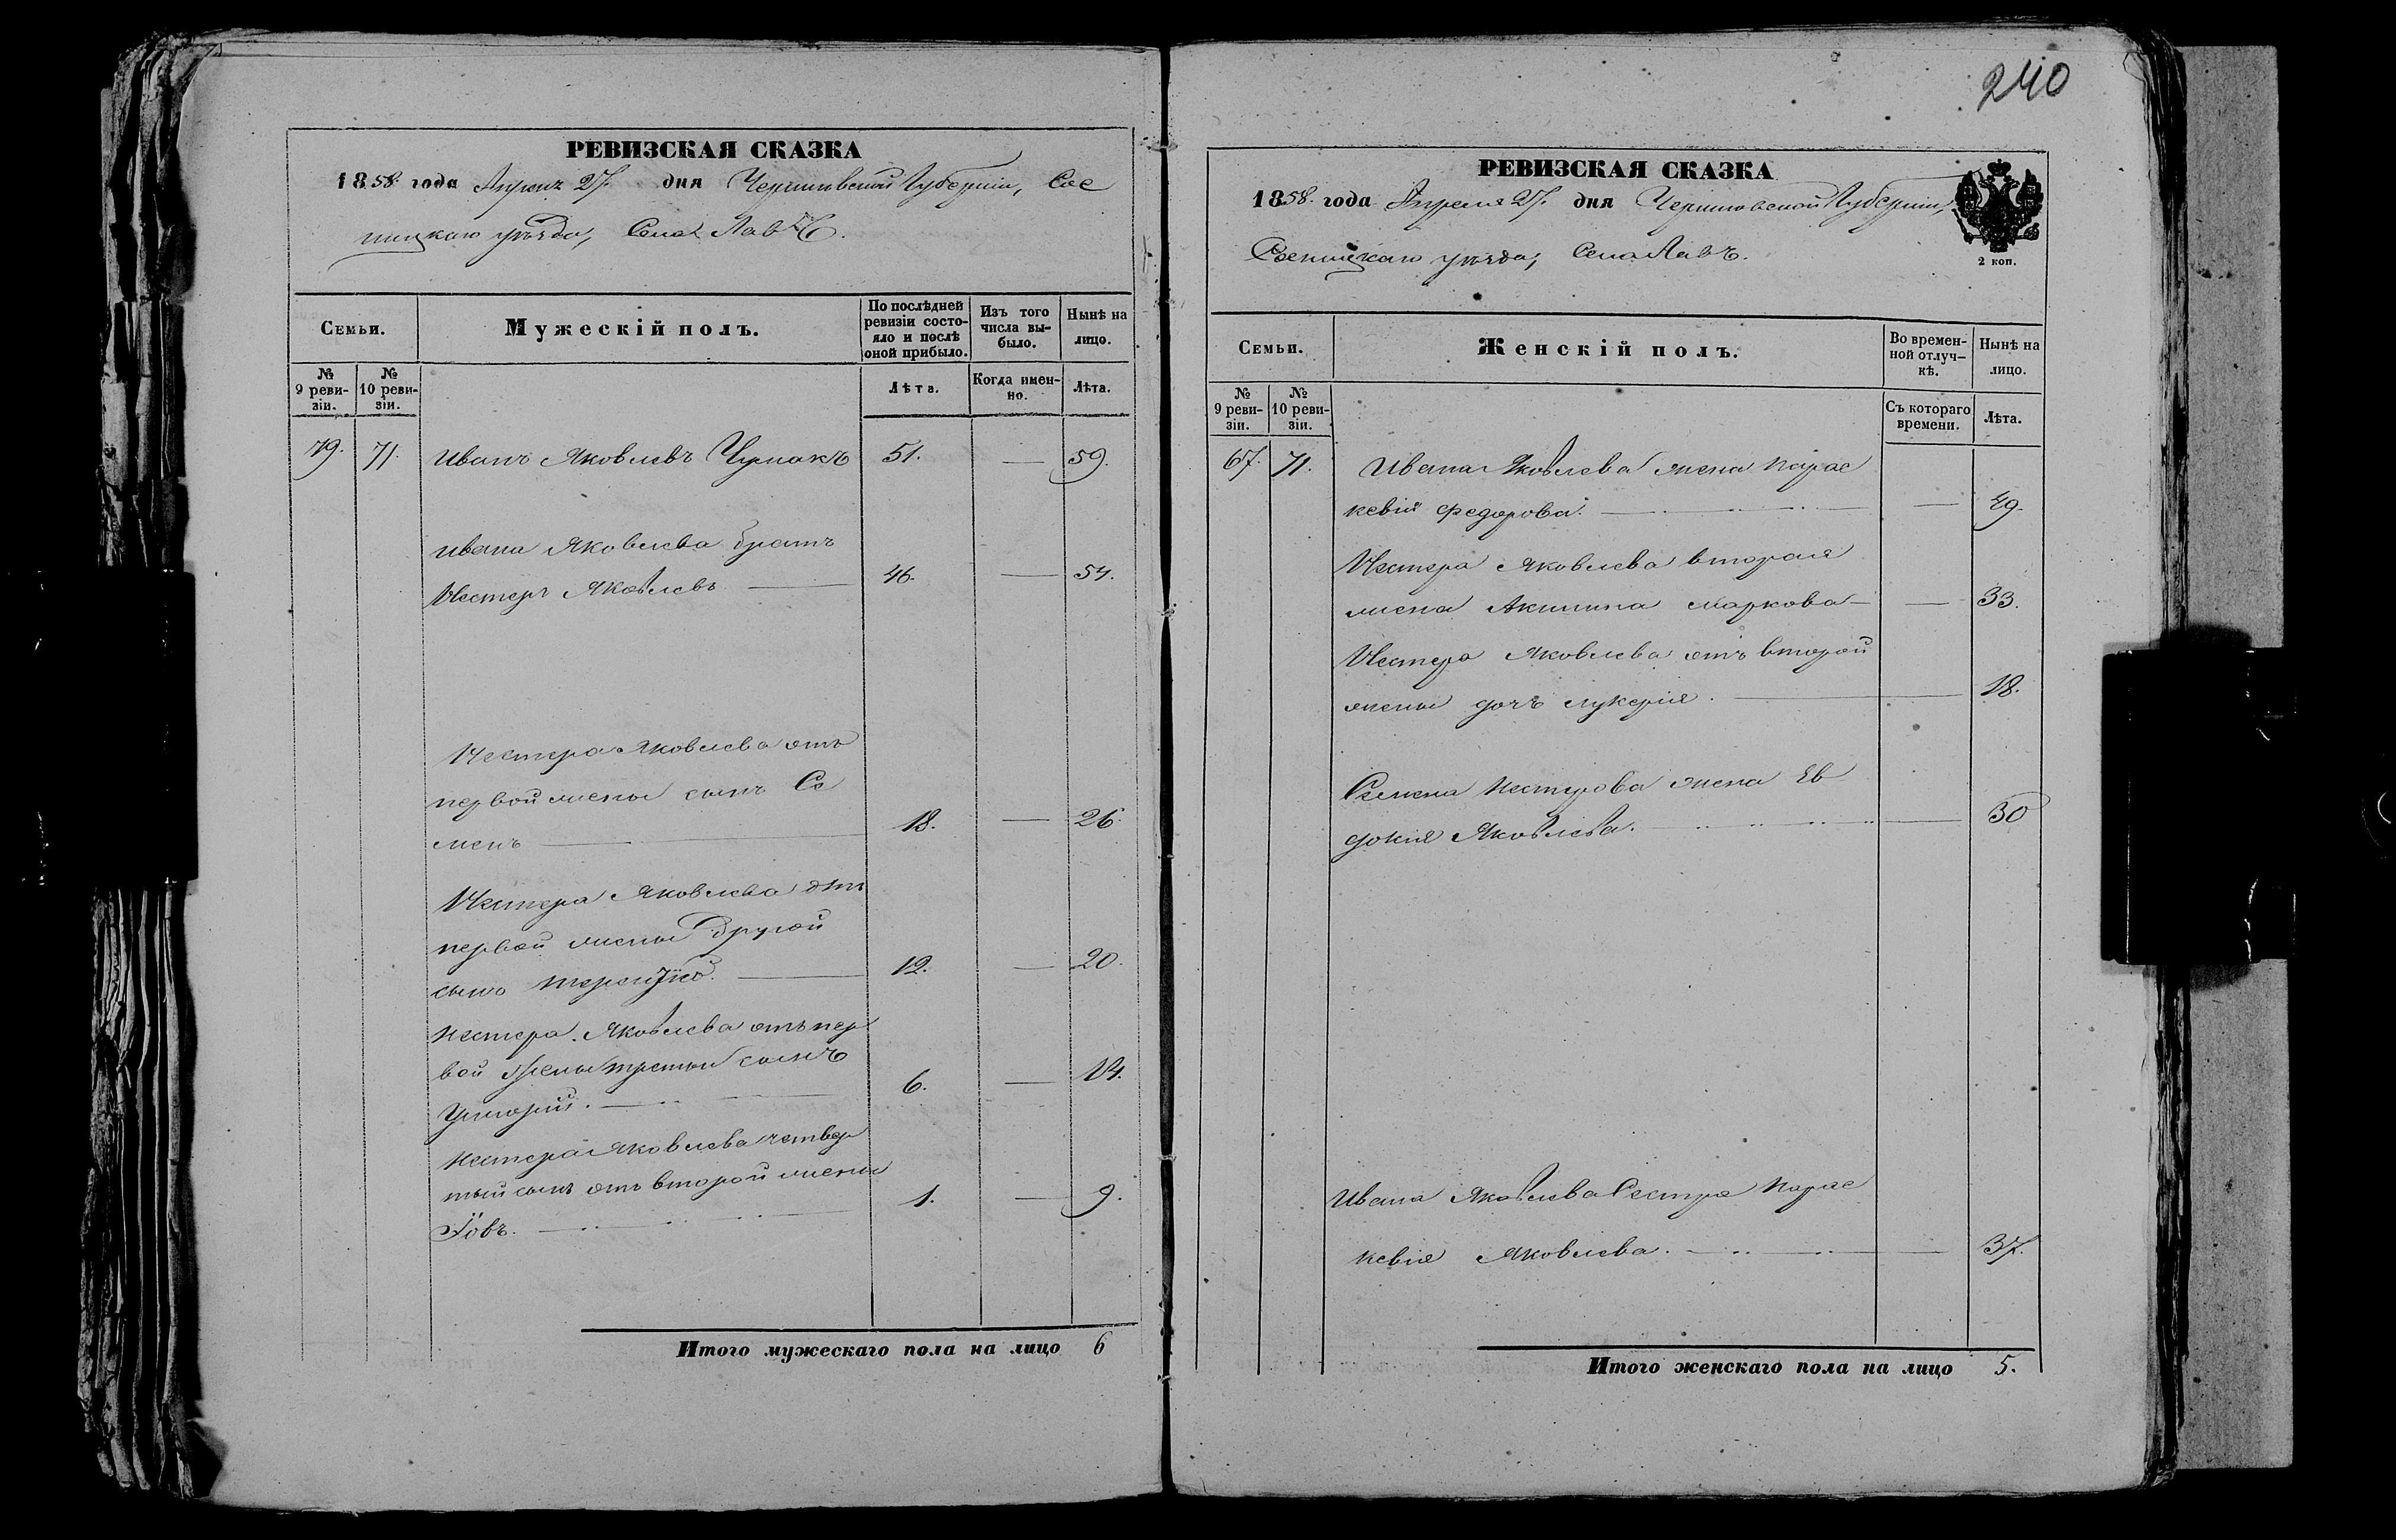 240
РЕВИЗСКАЯ СКАЗКА
1858 года Апреля 27. дня Черниговской Губерніи, Сос
ницкаго уѣзда, Села Лавъ.
Семьи.
Мужескій полъ.
По послѣдней ревизіи состояло и послѣ оной прибыло.
Изъ того числа выбыло.
Нынѣ на лицо.
№ 9 ревизіи.
№ 10 ревизіи.
Лѣта.
Когда именно.
Лѣта.
79. 71. Иванъ Яковлевъ Чумакъ 51. — 59.
Ивана Яковлева братъ
Нестеръ Яковлевъ — 46. — 54.
Нестера Яковлева отъ
первой жены сынъ Се
менъ — 18. — 26.
Нестера Яковлева отъ
первой жены другой
сынъ — 12. — 20.
Нестера Яковлева отъ пер
вой жены третий сынъ
Григорий. — 6. — 14.
Нестера Яковлева четвер
тый сынъ отъ второй жены
Іовъ. — 1. — 9.
Итого мужескаго пола на лицо 6
РЕВИЗСКАЯ СКАЗКА
1858. года Апреля 27. дня Черниговской Губерніи,
Сосницкаго уѣзда, Села Лавъ.
2 коп.
Семьи.
Женскій полъ.
Во временной отлучкѣ.
Нынѣ на лицо.
№ 9 ревизіи.
№ 10 ревизіи.
Съ котораго времени.
Лѣта.
67. 71. Ивана Яковлева жена Парас
кевія Федорова. — — 49.
Нестера Яковлева вторая
жена Акилина Маркова — — 33.
Нестера Яковлева отъ второй
жены дочь Лукерія. — 18.
Семена Нестерова жена Ев
докія Яковлева. — 30
Ивана Яковлева Сестра Парас
кевія Яковлева. — 37.
Итого женскаго пола на лицо 5.